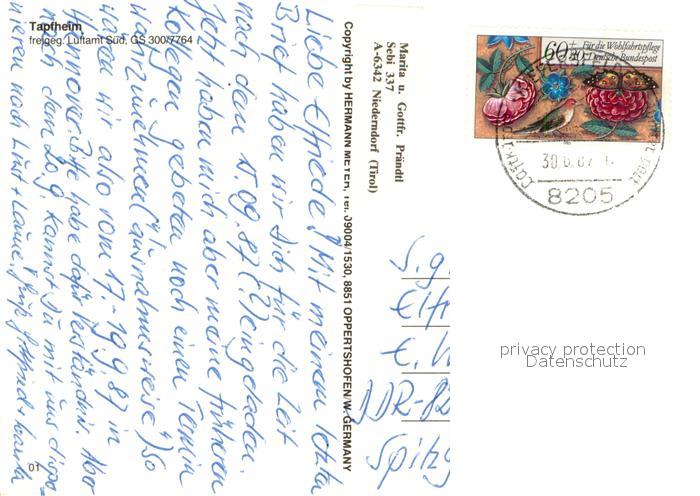 Tapfheim
freigeg. Luftamt Süd, GS 300/7764
Liebe Elfriede! Mit meinem letzten
Brief haben wir Dich für die Zeit
nach dem 15.09.87 (?) eingeladen.
Jetzt haben mich aber meine früheren
Kollegen gebeten noch einen Termin
wahrzunehmen ("Ausnahmsreise") so
wären wir also vom 17.-19.9.87 in
Hannover. Bitte habe dafür Verständnis. Aber
nach dem 20.9. kannst Du mit uns dispo-
nieren nach Lust + Laune.
01
Copyright by HERMANN MEYER, Tel. 09004/1530, 8851 OPPERTSHOFEN/W.-GERMANY
Marita u. Gottfr. Prändtl
Sebi 337
A-6342 Niederndorf (Tirol)
60+30 Für die Wohlfahrtspflege
Deutsche Bundespost
30.6.87
8205
S.g.
DDR-82
privacy protection
Datenschutz